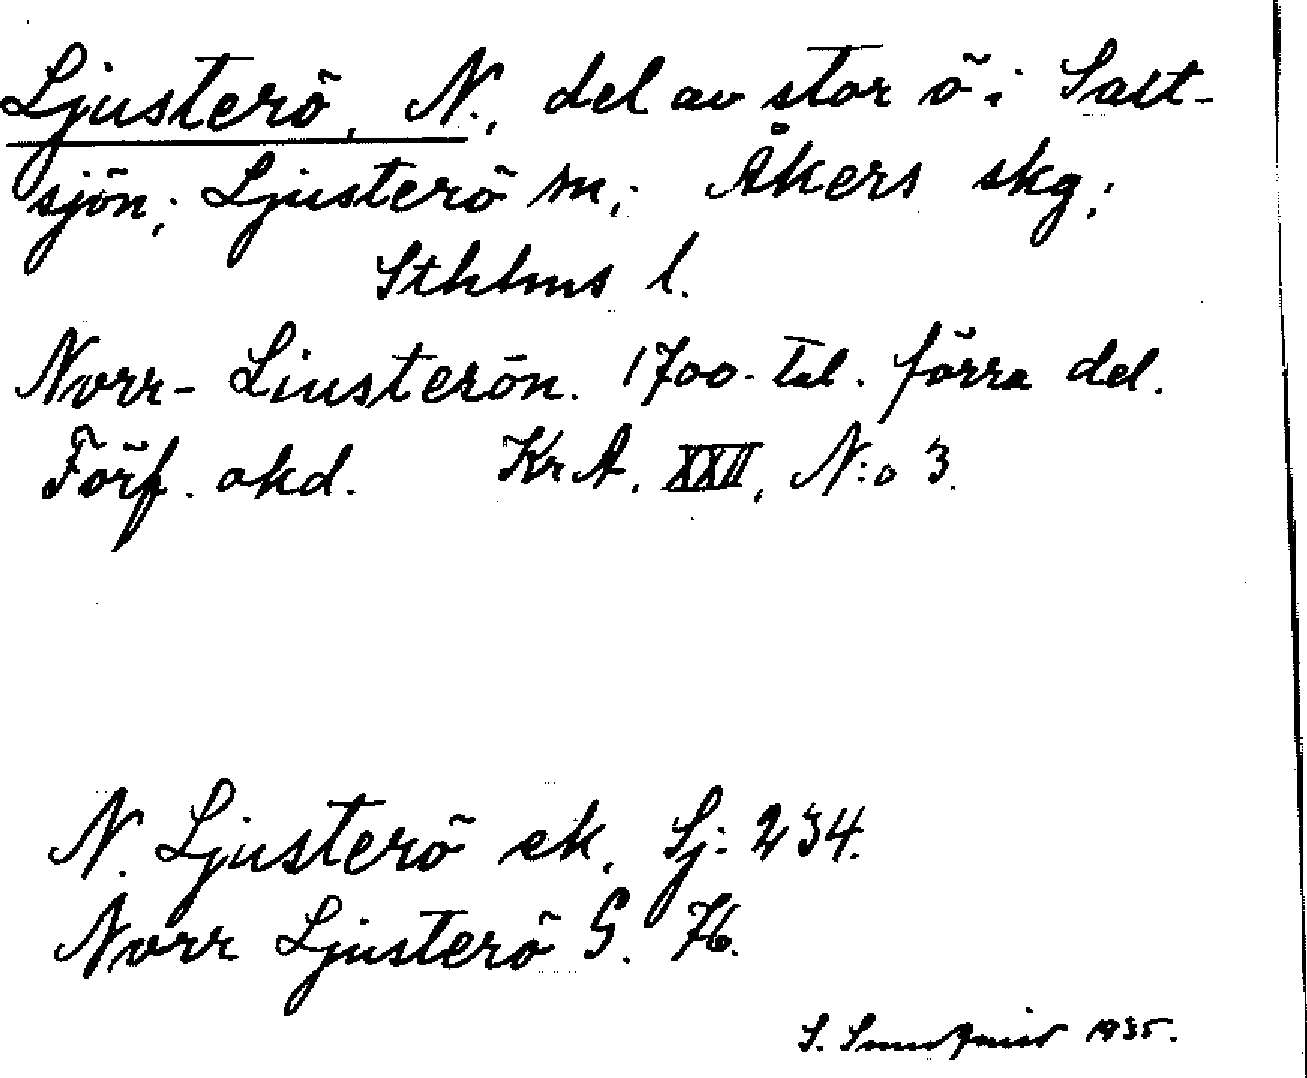 Ljusterö, N., del av stor ö i Salt-
sjön; Ljusterö sn; Åkers skg;
Sthlms l.
Norr-Liusterön. 1700-tal. förra del.
Förf. okd. KrA. XXII, N:o 3.
N. Ljusterö ek. Sj: 234.
Norr Ljusterö G. 76.
S. Sundquist 1935.